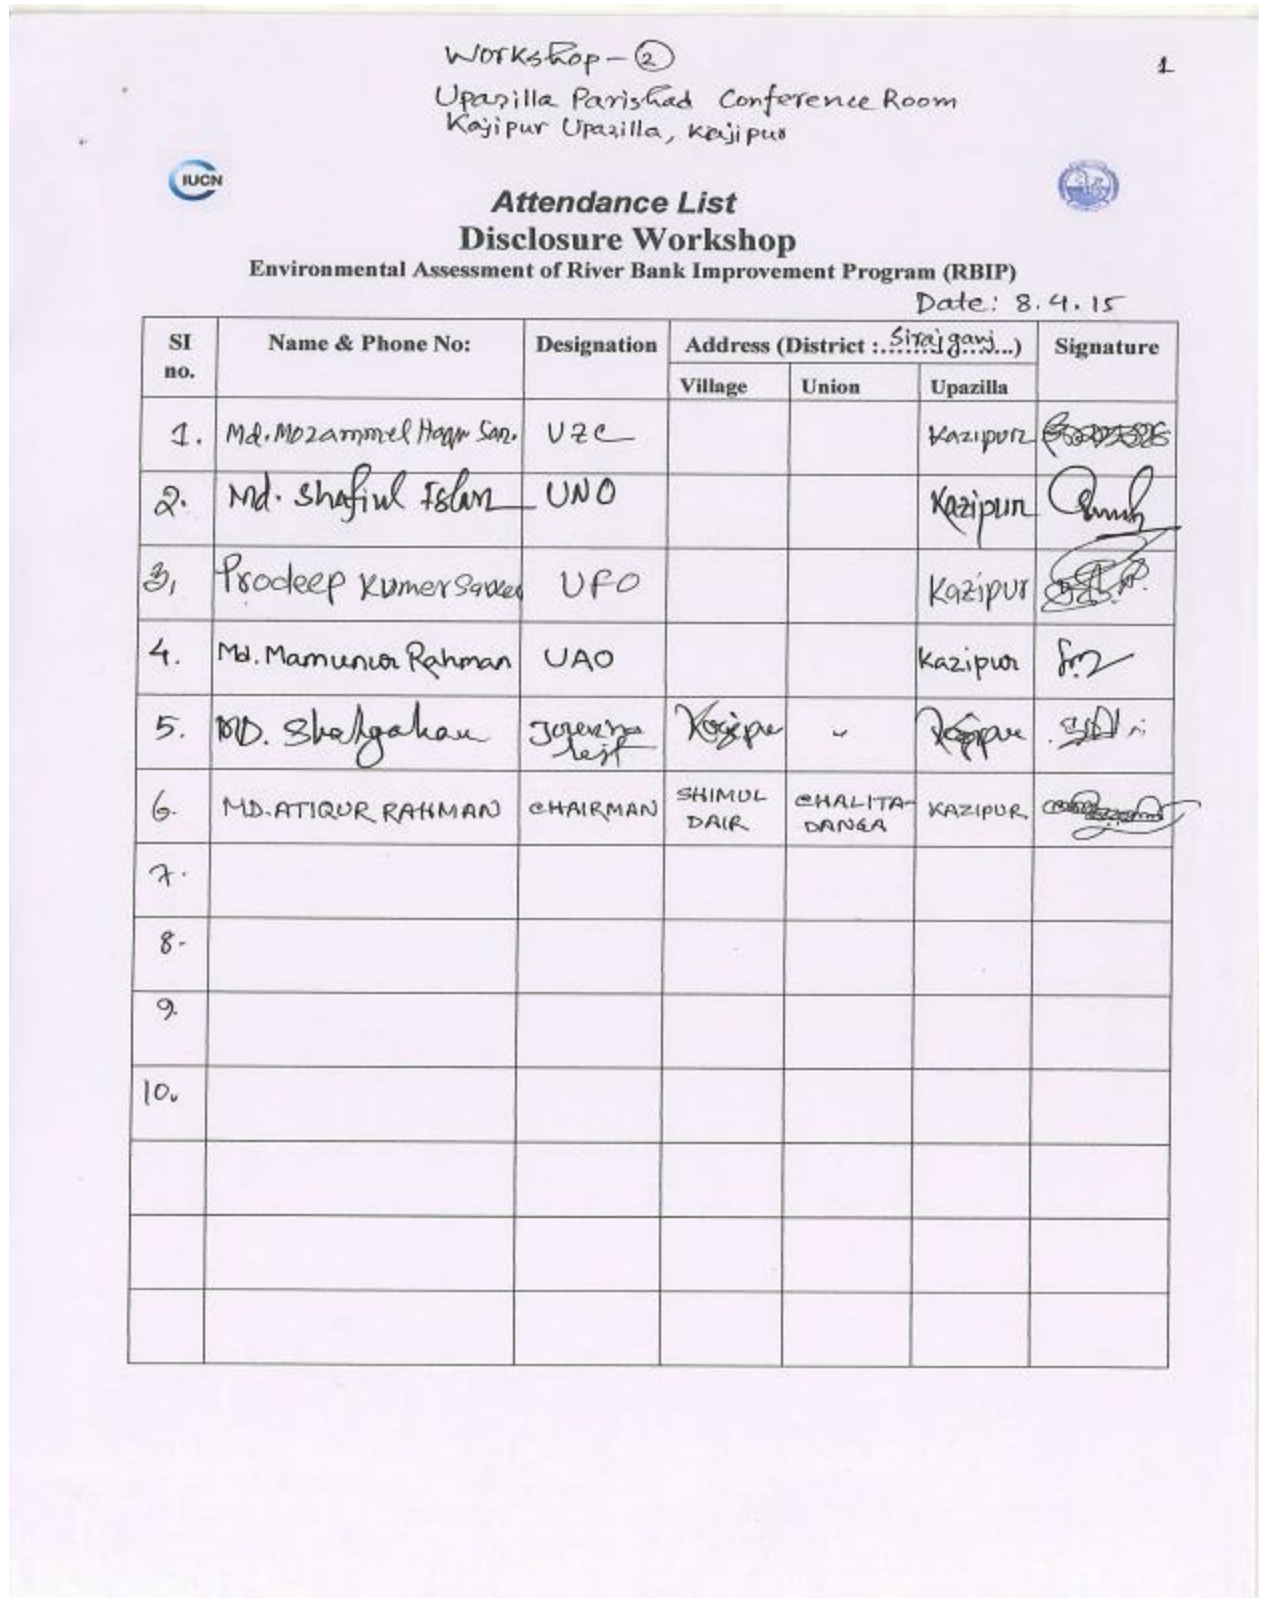 Workshop - 2
1
Upazilla Parishad Conference Room
Kajipur Upazilla, Kajipur
IUCN
Attendance List
Disclosure Workshop
Environmental Assessment of River Bank Improvement Program (RBIP)
Date: 8.4.15
SI no. Name & Phone No: Designation Address (District :.Sirajganj...) Signature
Village Union Upazilla
1. Md. Mozammel UZC Kazipur
2. Md. Shafiul Islam UNO Kazipur
3, Prodeep Kumer UFO Kazipur
4. Md. Mamunur Rahman UAO Kazipur
5. MD. Shahjahan
6. MD. ATIQUR RAHMAN CHAIRMAN SHIMUL DAIR CHALITA-DANGA KAZIPUR
7.
8.
9.
10.